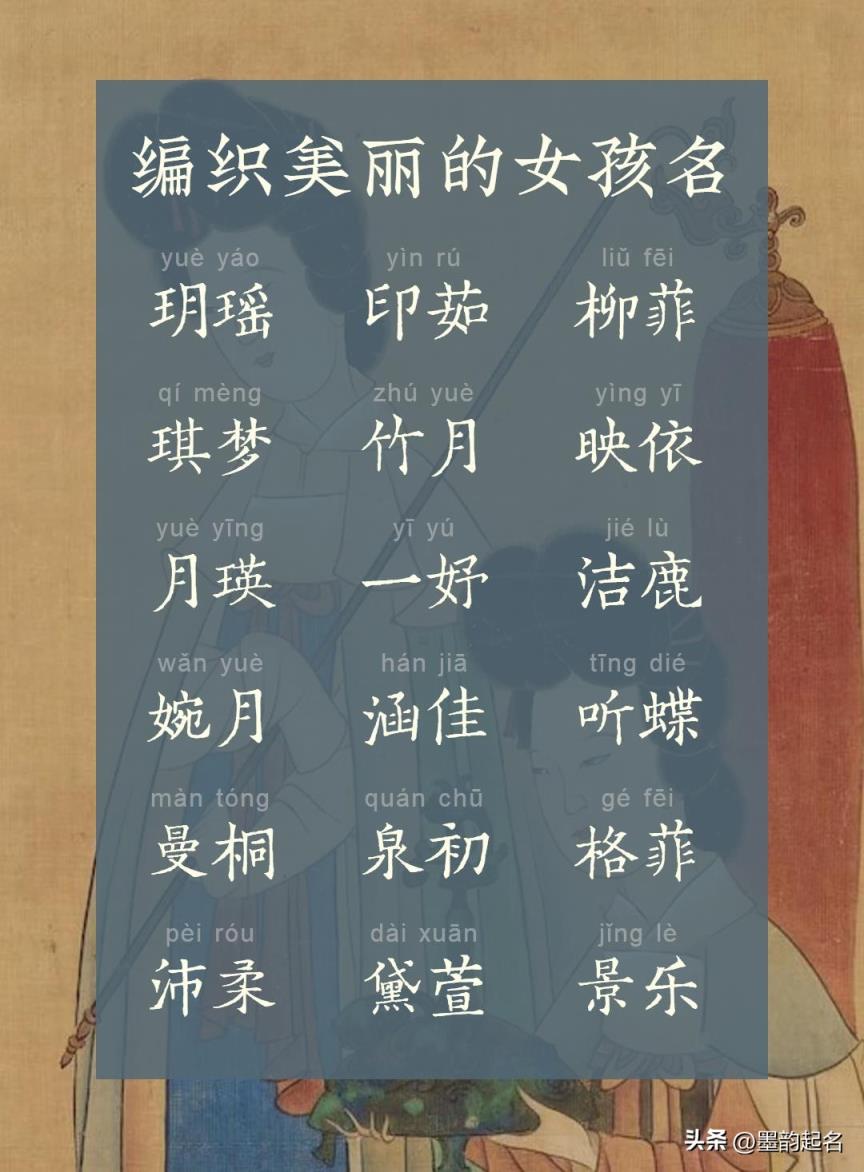 编织美丽的女孩名
yuè yáo yìn rú liǔ fēi
玥瑶 印茹 柳菲
qí mèng zhú yuè yìng yī
琪梦 竹月 映依
yuè yīng yī yú jié lù
月瑛 一妤 洁鹿
wǎn yuè hán jiā tīng dié
婉月 涵佳 听蝶
màn tóng quán chū gé fēi
曼桐 泉初 格菲
pèi róu dài xuān jǐng lè
沛柔 黛萱 景乐
头条 @墨韵起名